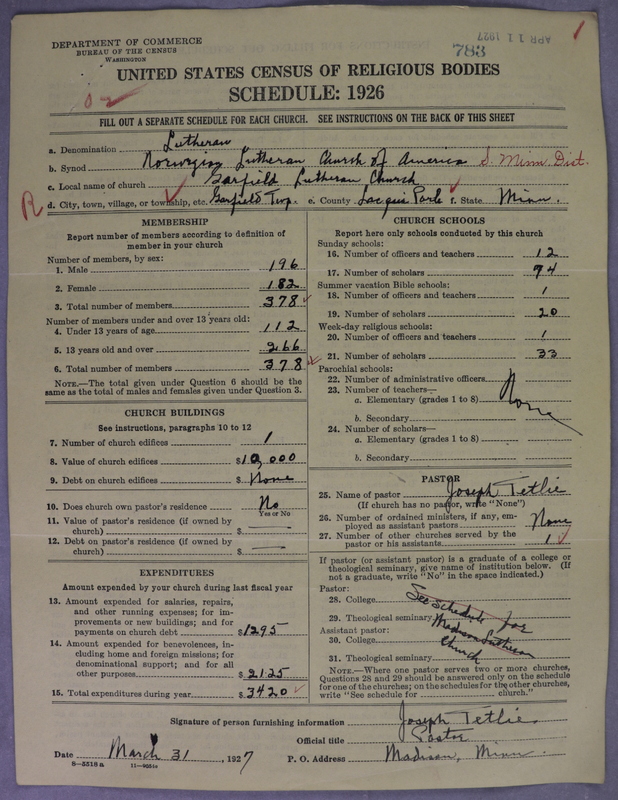 DEPARTMENT OF COMMERCE
BUREAU OF THE CENSUS
WASHINGTON
783
APR 11 1927
1
UNITED STATES CENSUS OF RELIGIOUS BODIES
SCHEDULE: 1926
FILL OUT A SEPARATE SCHEDULE FOR EACH CHURCH. SEE INSTRUCTIONS ON THE BACK OF THIS SHEET
a. Denomination Lutheran
b. Synod Norwegian Lutheran Church of America S. Minn. Dist.
c. Local name of church Garfield Lutheran Church
R d. City, town, village, or township, etc. Garfield Twp. e. County Lacqui Parle f. State Minn.
MEMBERSHIP
Report number of members according to definition of
member in your church
Number of members, by sex:
1. Male 196
2. Female 182
3. Total number of members 378
Number of members under and over 13 years old:
4. Under 13 years of age 112
5. 13 years old and over 266
6. Total number of members 378
NOTE.—The total given under Question 6 should be the
same as the total of males and females given under Question 3.
CHURCH BUILDINGS
See instructions, paragraphs 10 to 12
7. Number of church edifices 1
8. Value of church edifices $10,000
9. Debt on church edifices $ None
10. Does church own pastor's residence No
Yes or No
11. Value of pastor's residence (if owned by
church) $ —
12. Debt on pastor's residence (if owned by
church) $ —
EXPENDITURES
Amount expended by your church during last fiscal year
13. Amount expended for salaries, repairs,
and other running expenses; for im-
provements or new buildings; and for
payments on church debt $1295
14. Amount expended for benevolences, in-
cluding home and foreign missions; for
denominational support; and for all
other purposes $2125
15. Total expenditures during year $3420
CHURCH SCHOOLS
Report here only schools conducted by this church
Sunday schools:
16. Number of officers and teachers 12
17. Number of scholars 74
Summer vacation Bible schools:
18. Number of officers and teachers 1
19. Number of scholars 20
Week-day religious schools:
20. Number of officers and teachers 1
21. Number of scholars 33
Parochial schools:
22. Number of administrative officers
23. Number of teachers—
a. Elementary (grades 1 to 8) None
b. Secondary
24. Number of scholars—
a. Elementary (grades 1 to 8)
b. Secondary
PASTOR
25. Name of pastor Joseph Tetlie
(If church has no pastor, write "None")
26. Number of ordained ministers, if any, em-
ployed as assistant pastors None
27. Number of other churches served by the
pastor or his assistants 1
If pastor (or assistant pastor) is a graduate of a college or
theological seminary, give name of institution below. (If
not a graduate, write "No" in the space indicated.)
Pastor:
28. College See Schedule for
29. Theological seminary Madison Lutheran
Assistant pastor:
30. College Church
31. Theological seminary
NOTE.—Where one pastor serves two or more churches,
Questions 28 and 29 should be answered only on the schedule
for one of the churches; on the schedules for the other churches,
write "See schedule for church."
Signature of person furnishing information Joseph Tetlie
Official title Pastor
Date March 31, 1927 P. O. Address Madison, Minn.
8—5518a 11—9054